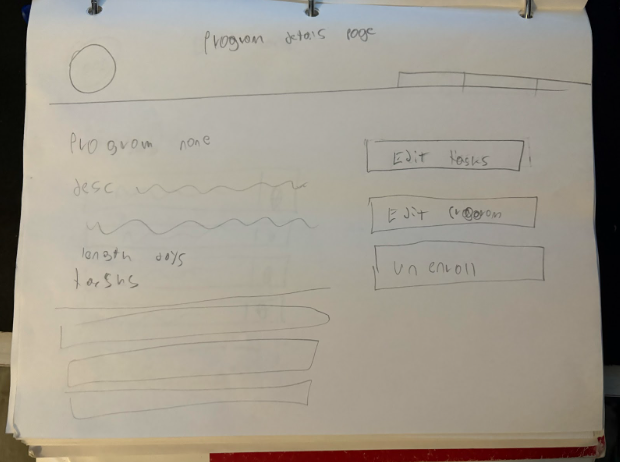 Program details page
Program name
desc
length days
tasks
Edit tasks
Edit program
Un enroll